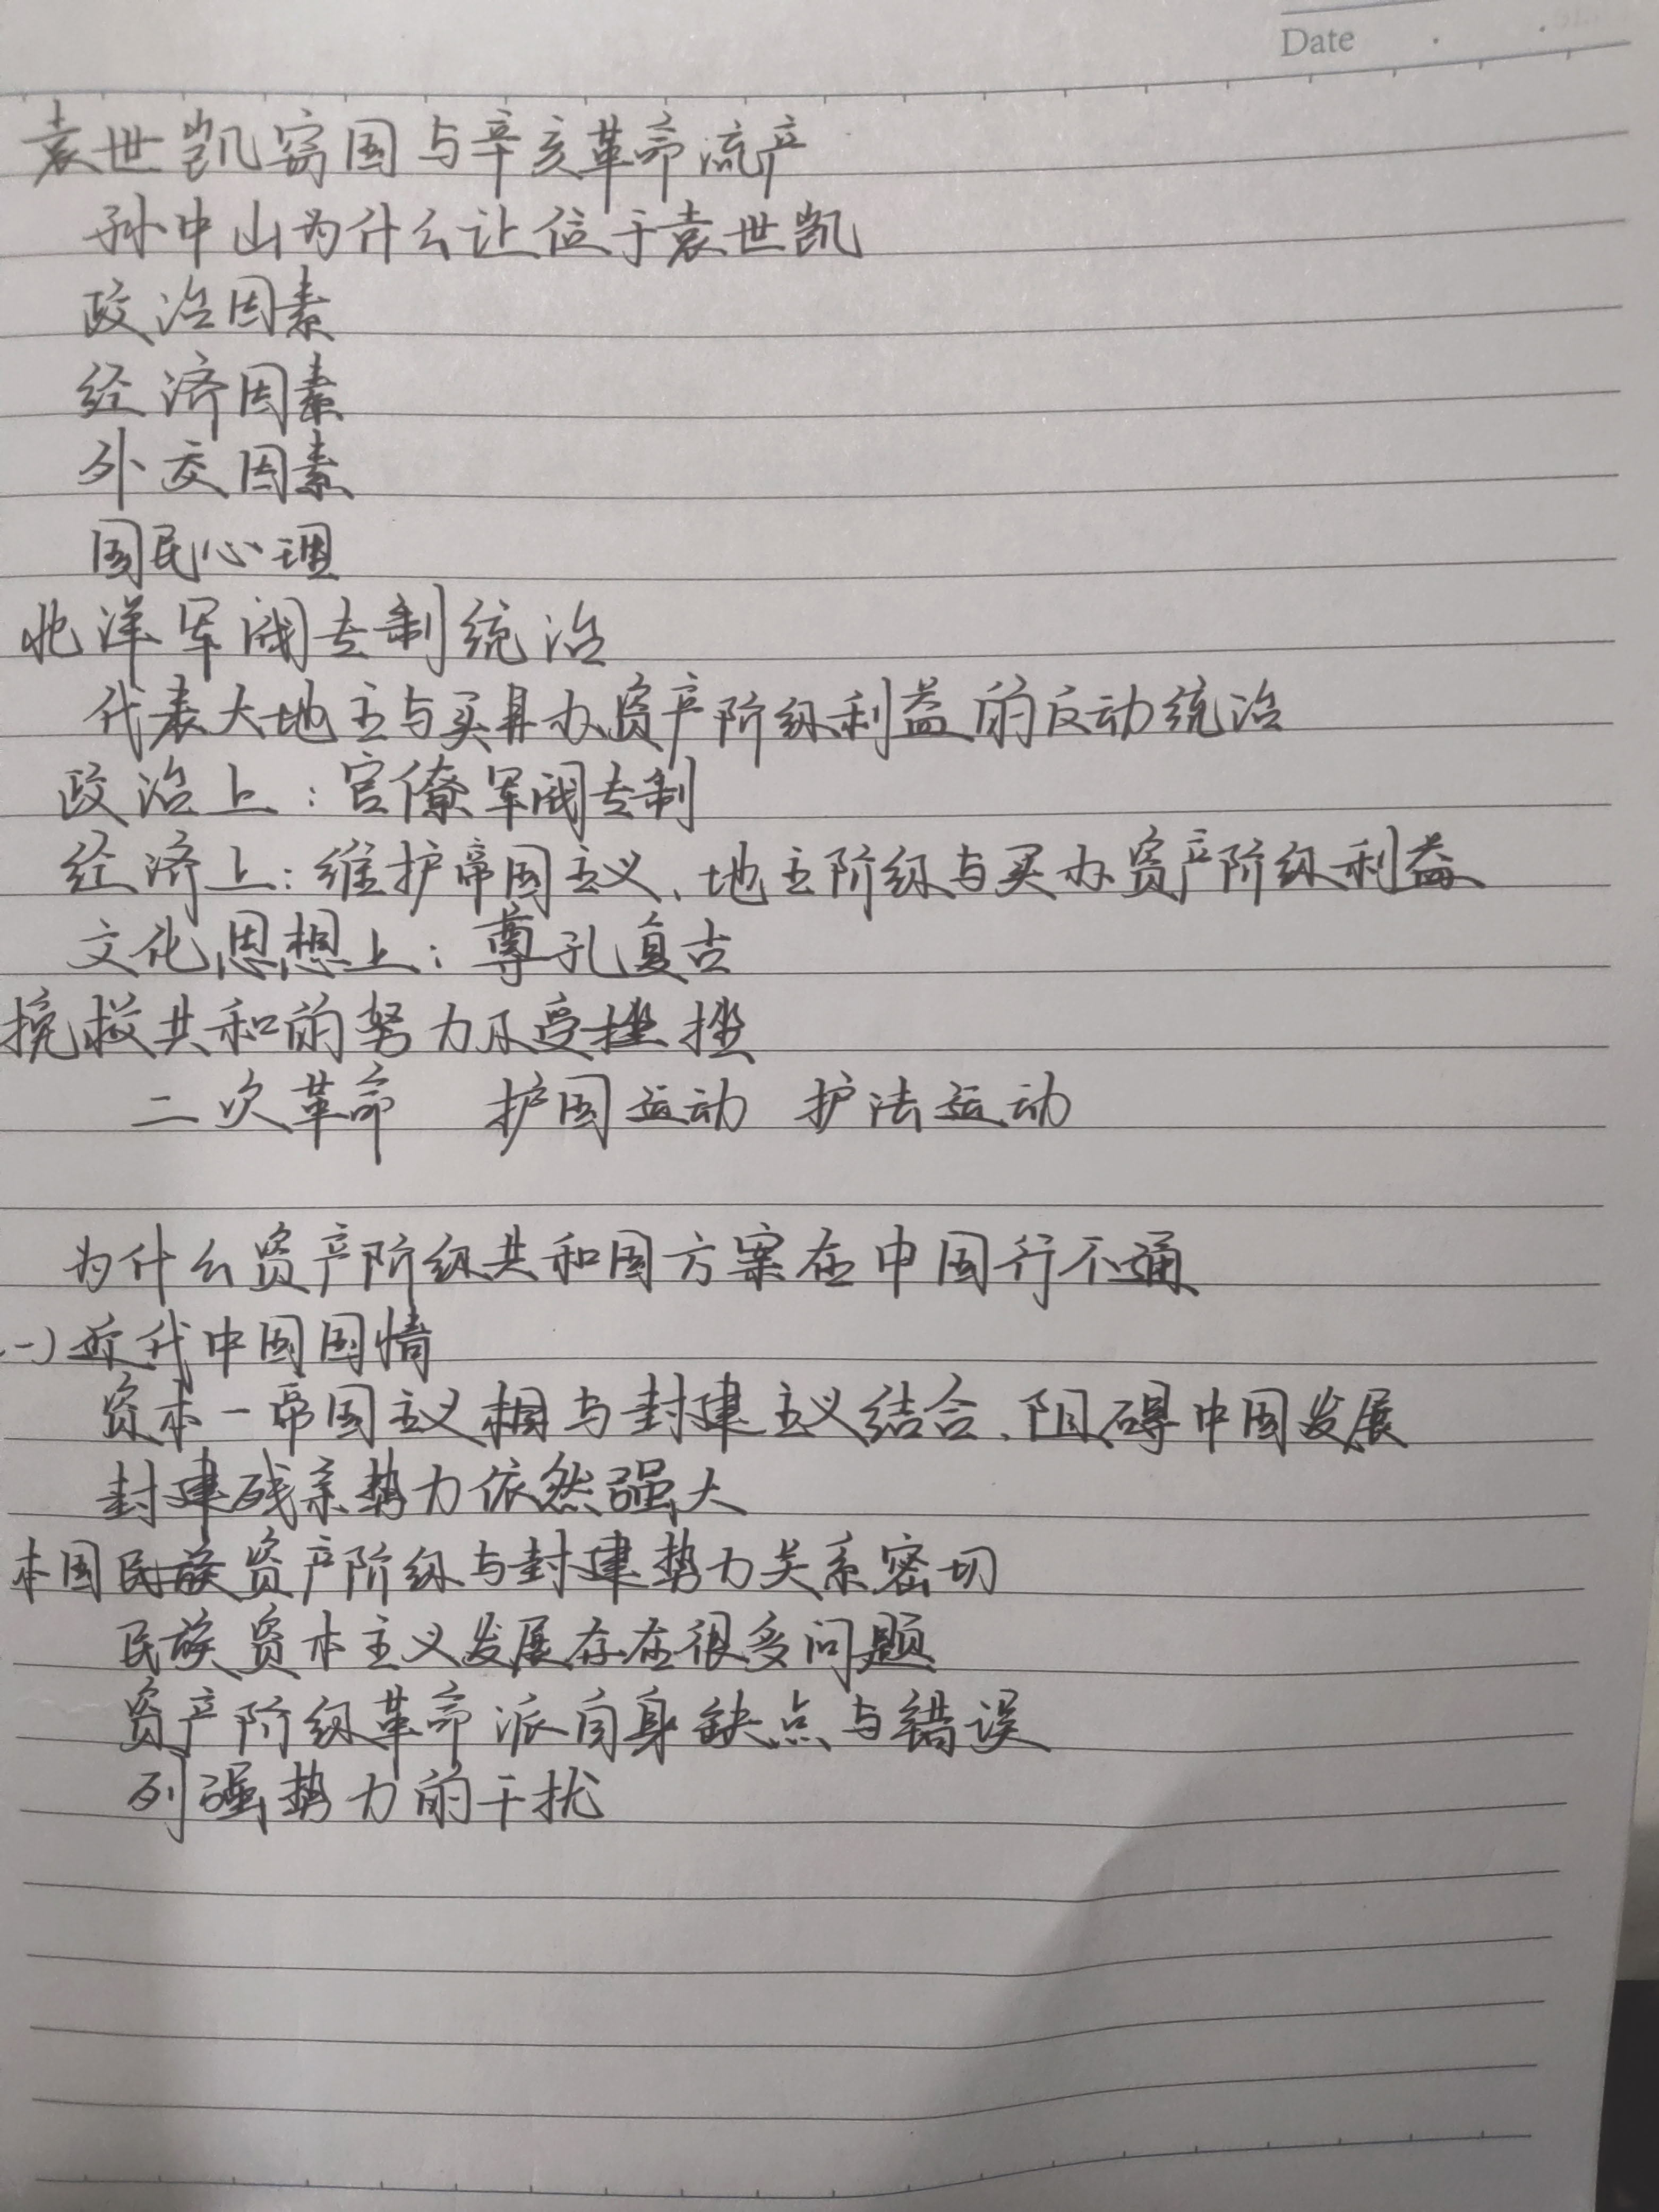 Date
袁世凯窃国与辛亥革命流产
孙中山为什么让位于袁世凯
政治因素
经济因素
外交因素
国民心理
北洋军阀专制统治
代表大地主与买办资产阶级利益的反动统治
政治上：官僚军阀专制
经济上：维护帝国主义、地主阶级与买办资产阶级利益
文化思想上：尊孔复古
挽救共和的努力及受挫
二次革命 护国运动 护法运动
为什么资产阶级共和国方案在中国行不通
一)近代中国国情
资本-帝国主义与封建主义结合、阻碍中国发展
封建残余势力依然强大
本国民族资产阶级与封建势力关系密切
民族资本主义发展存在很多问题
资产阶级革命派自身缺点与错误
列强势力的干扰